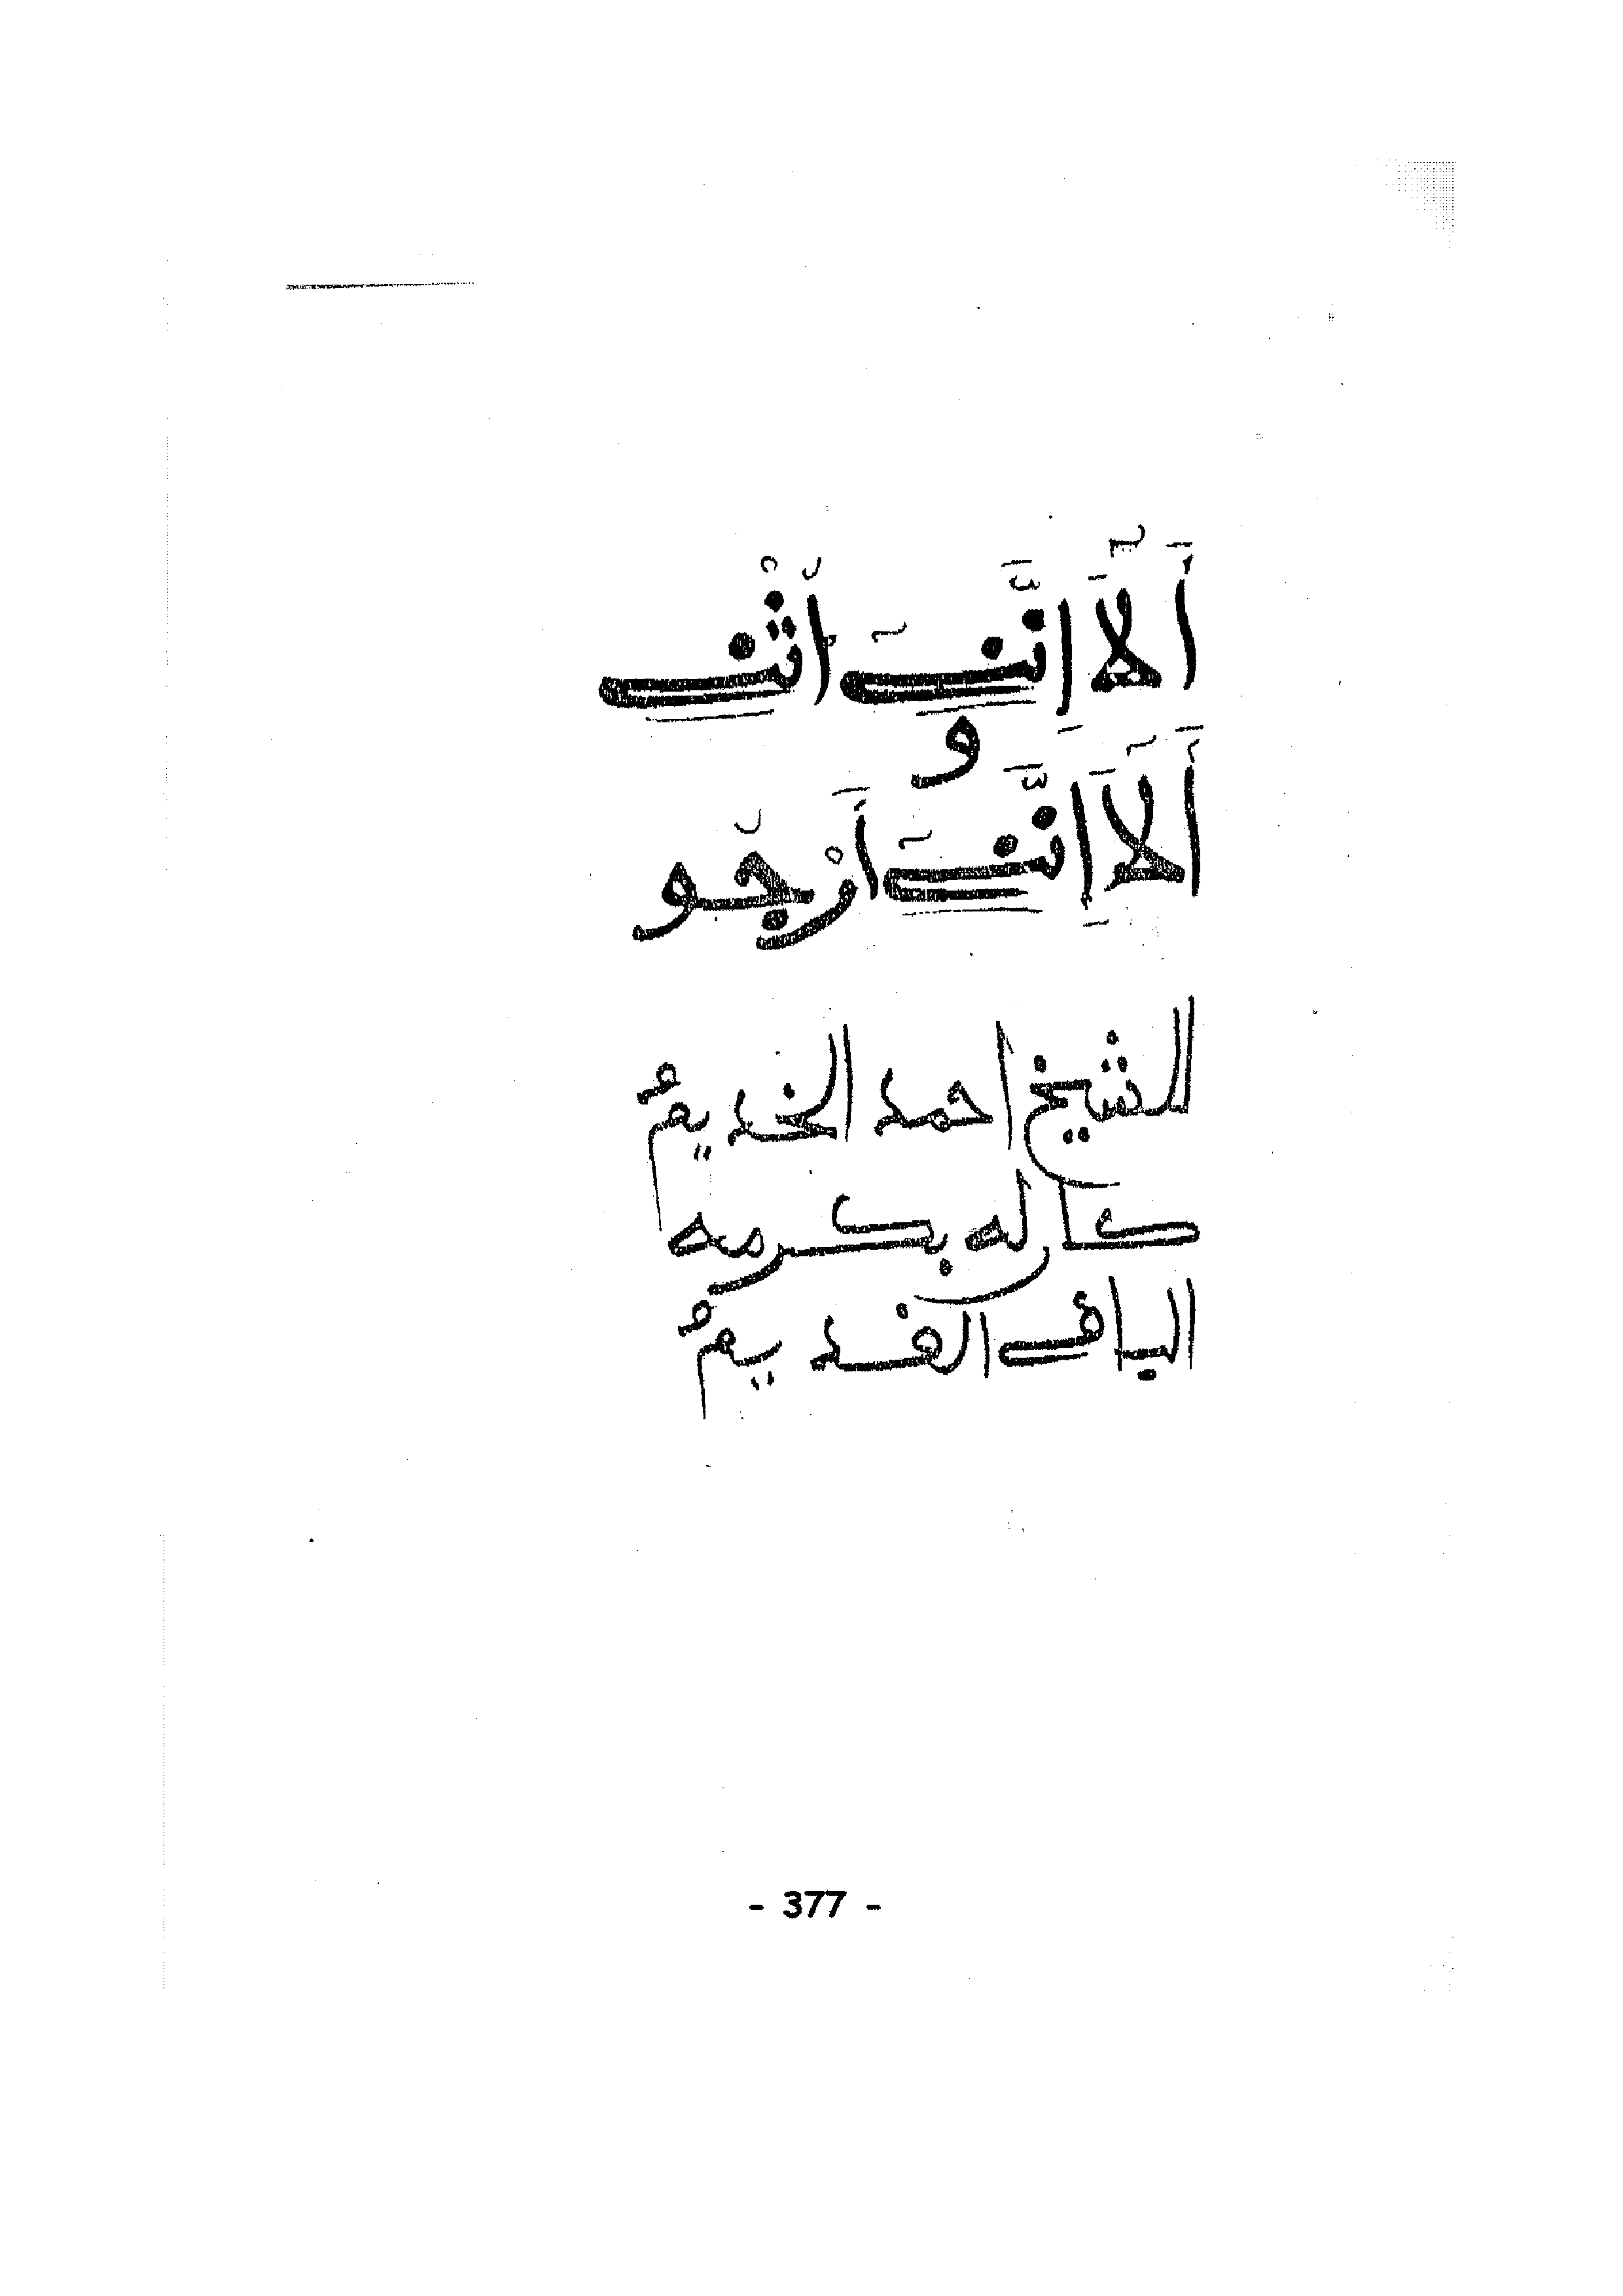 أَلَآ إِنَّنِي أُثْنِي
و
أَلَآ إِنَّنِي أَرْجُو
للشيخ احمد الخديمُ
كان له بكرمه
الباقى القديمُ
- 377 -